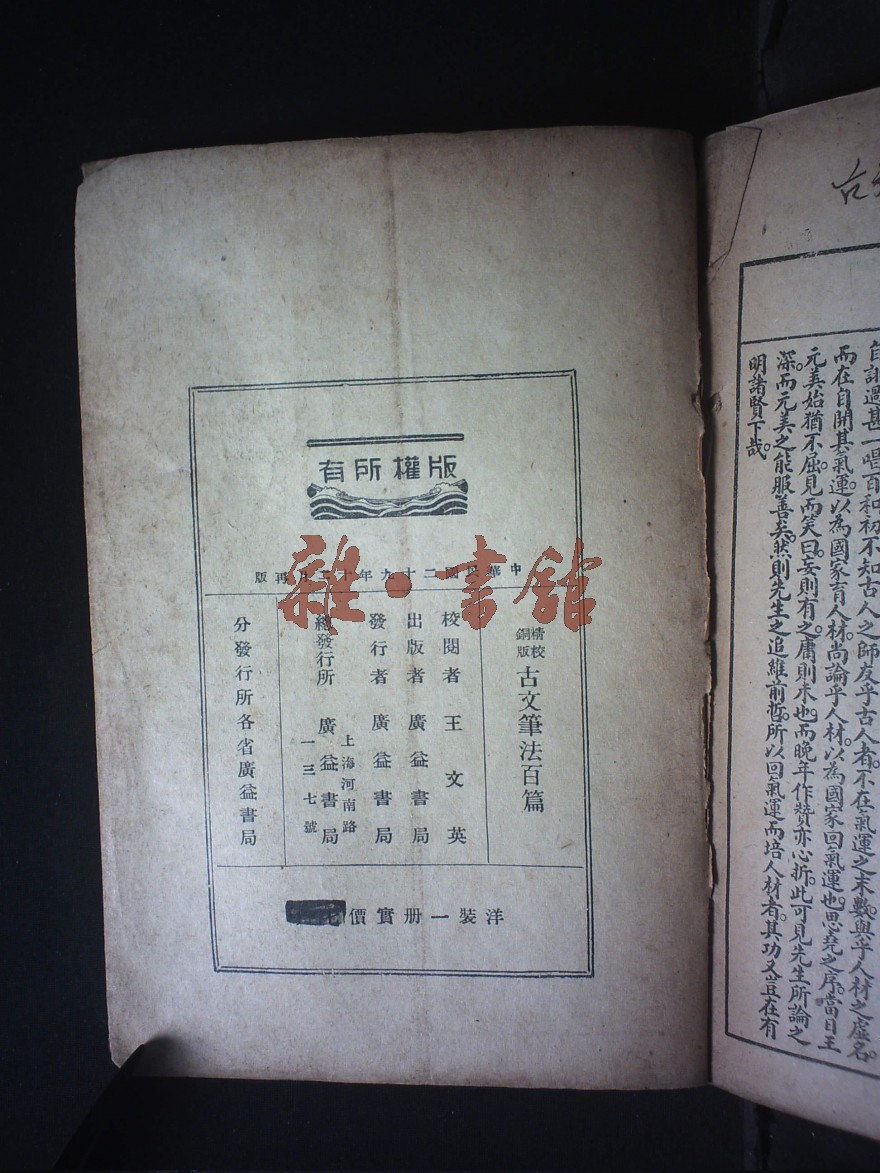 版權所有
中華民國二十九年十二月再版
精校
銅版
古文筆法百篇
校閱者 王文英
出版者 廣益書局
發行者 廣益書局
總發行所 廣益書局
上海河南路
一三七號
分發行所各省廣益書局
洋裝一册實價
雜·書館
古
自謝過甚一唱百和初不知古人之師友乎古人者。不在氣運之末數與乎人材之虛名。
而在自開其氣運。以為國家育人材。尚論乎人材。以為國家回氣運也。思堯之序。當日王
元美始猶不屈。見而笑曰。妄則有之。庸則未也。而晚年作贊亦心折。此可見先生所論之
深。而元美之能服善矣。然則先生之追維前哲。所以回氣運而培人材者。其功又豈在有
明諸賢下哉。